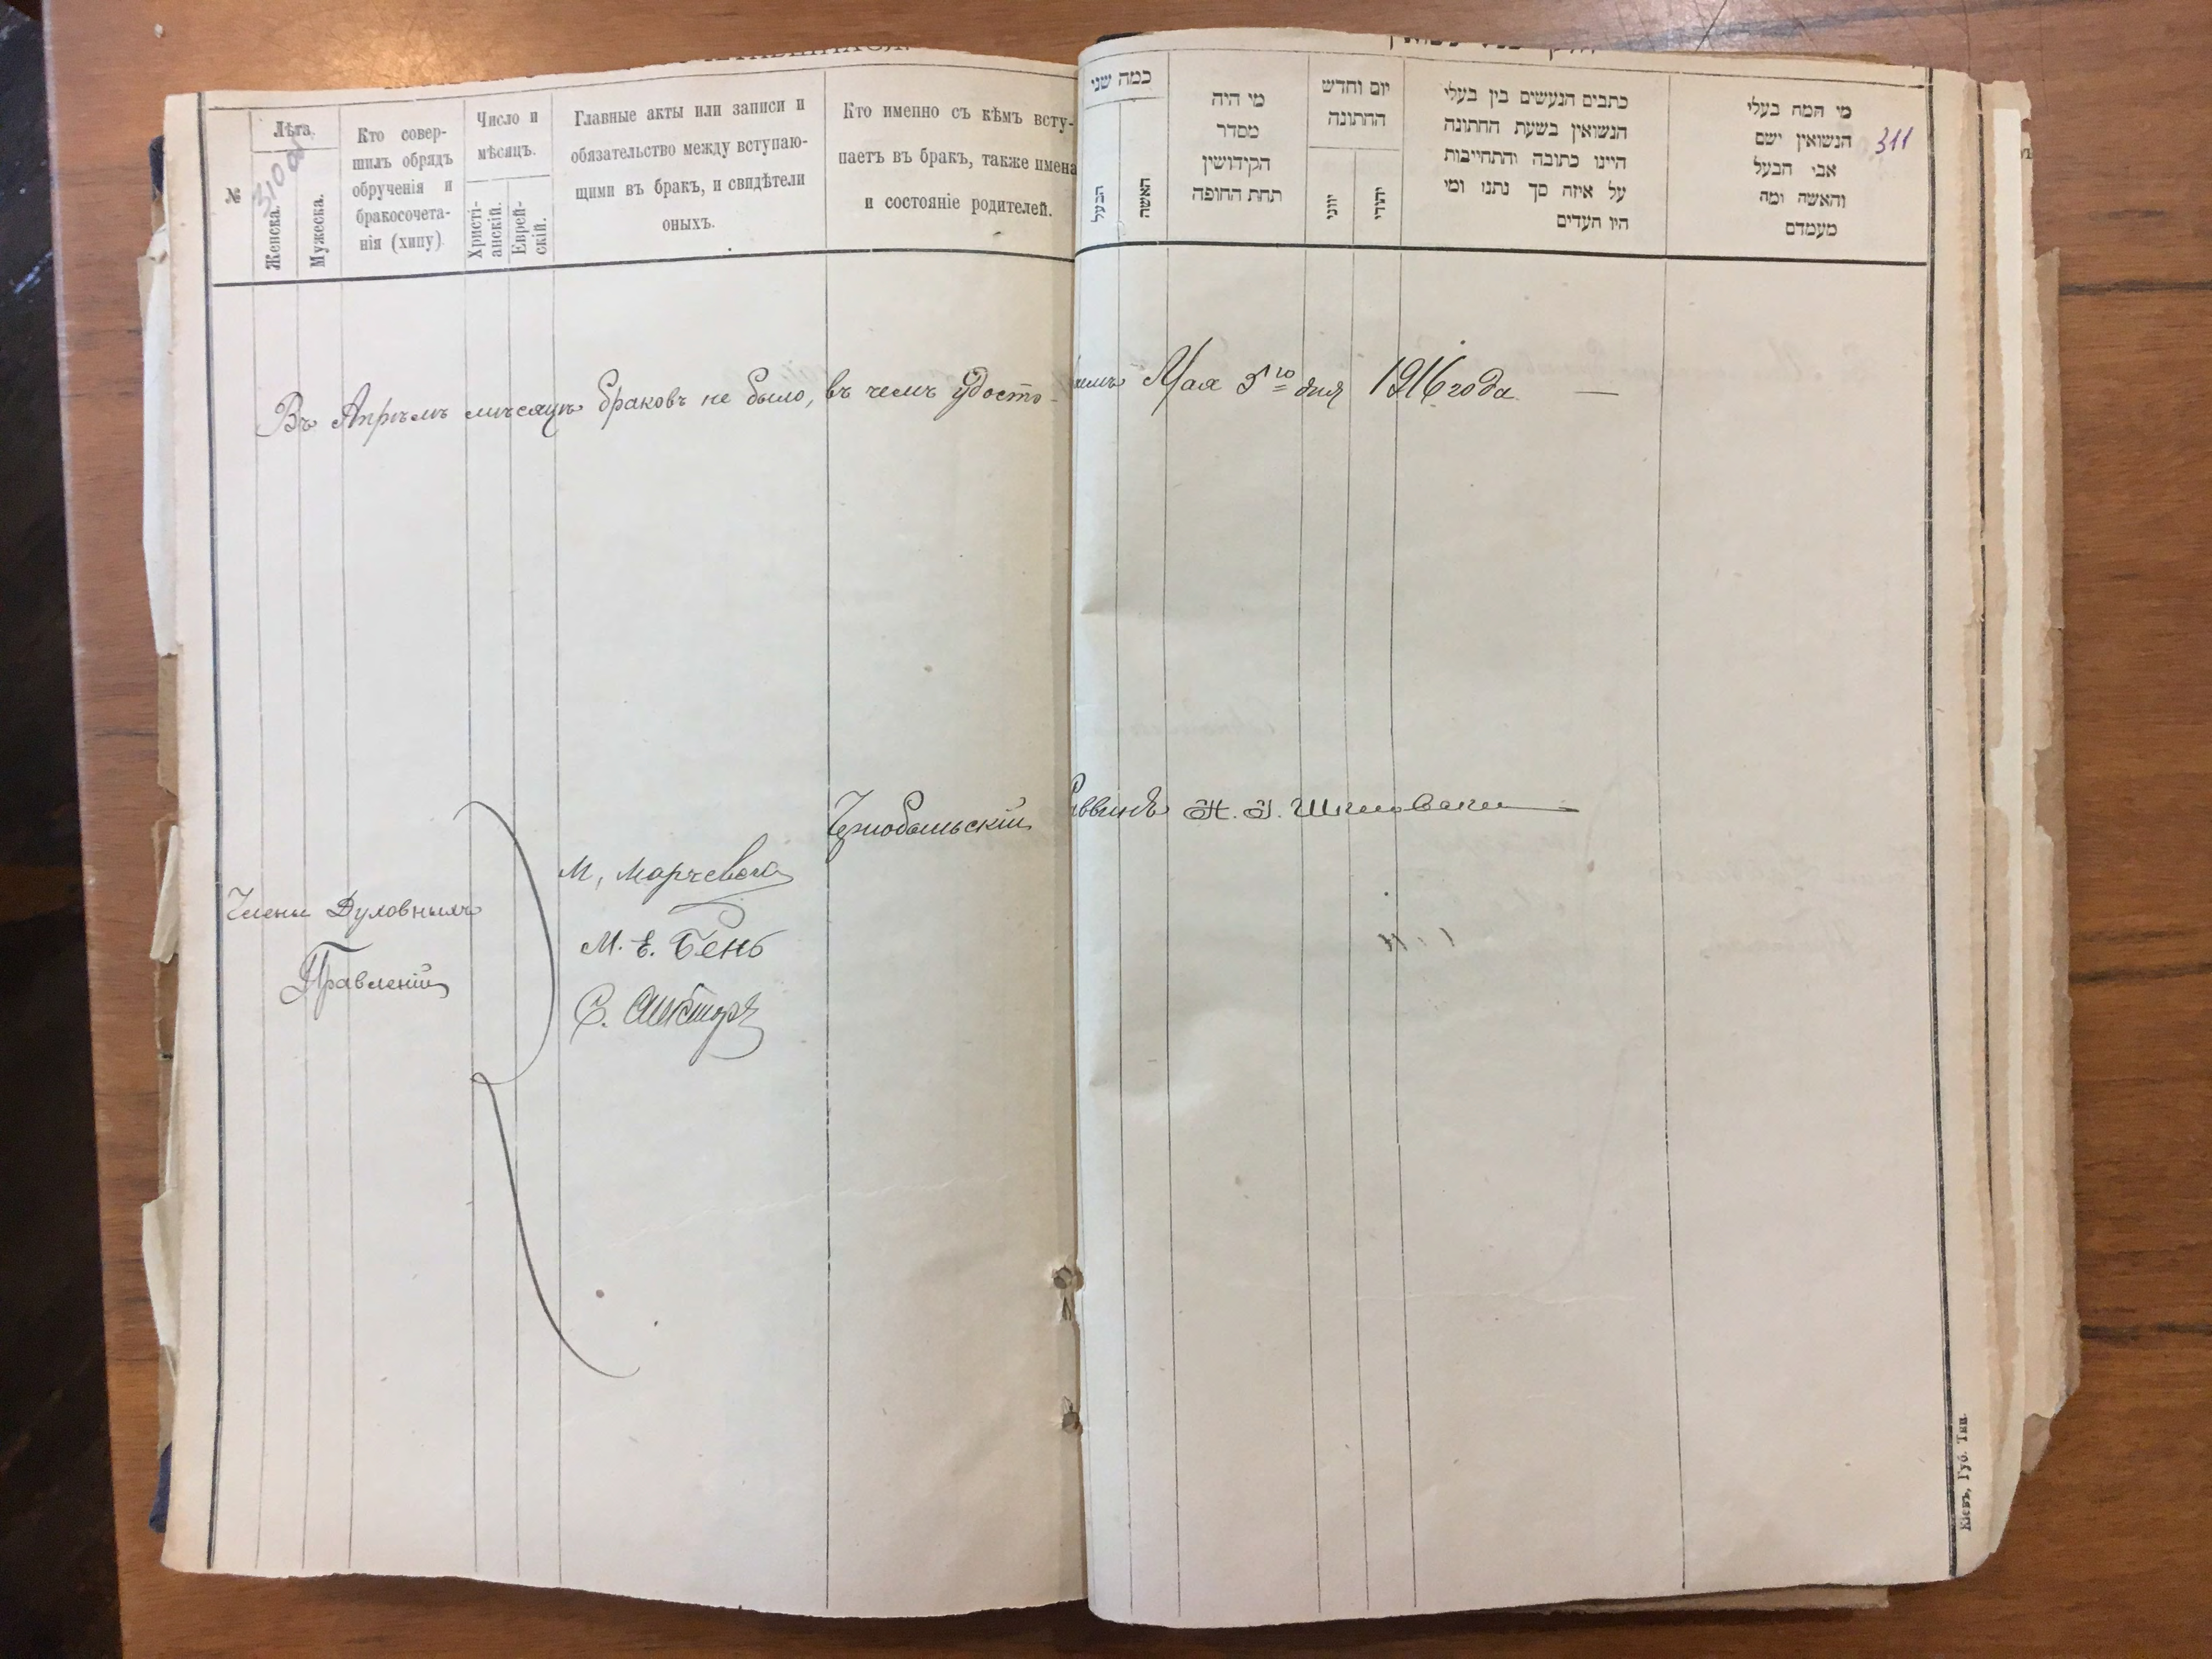 №
Лѣта.
310 об.
Женска.
Мужеска.
Кто совер-
шилъ обрядъ
обрученія и
бракосочета-
нія (хипу)
Число и
мѣсяцъ.
Христі-
анскій.
Еврей-
скій.
Главные акты или записи и
обязательство между вступаю-
щими въ брак, и свидѣтели
оныхъ.
Кто именно съ кѣмъ всту-
паетъ въ брак, также имена
и состояніе родителей.
כמה שני
הבעל
האשה
מי היה
מסדר
הקידושין
תחת החופה
יום וחדש
החתונה
יווני
יהודי
כתבים הנעשים בין בעלי
הנשואין בשעת החתונה
היינו כתובה והתחייבות
על איזה סך נתנו ומי
היו העדים
מי המה בעלי
הנשואין ושם
אבי הבעל
והאשה ומה
מעמדם
311
Въ Апрѣлѣ мѣсяцѣ браковъ не было, въ чемъ удосто- Мая 3го дня 1916 года. —
Чернобыльскій Раввинъ
Члены Духовныхъ
Правленій
М. Е. Бень
Кіевъ, Губ. Тип.